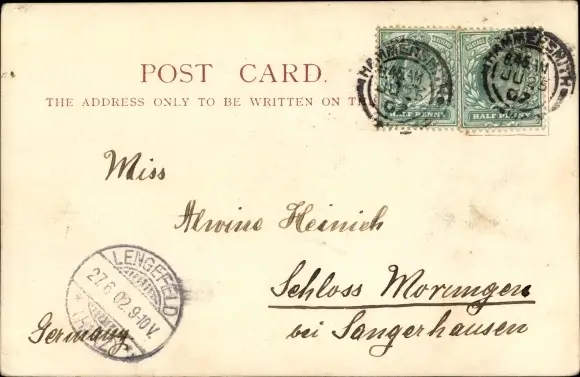 POST CARD.
THE ADDRESS ONLY TO BE WRITTEN ON
HAMMERSMITH
8.45 AM
JU 25
02
HAMMERSMITH
8.45 AM
JU 25
02
HALF PENNY
HALF PENNY
Miss
Alwine Heinich
LENGEFELD
27.6.02.9-10V.
Schloss Morungen
bei Sangerhausen
Germany